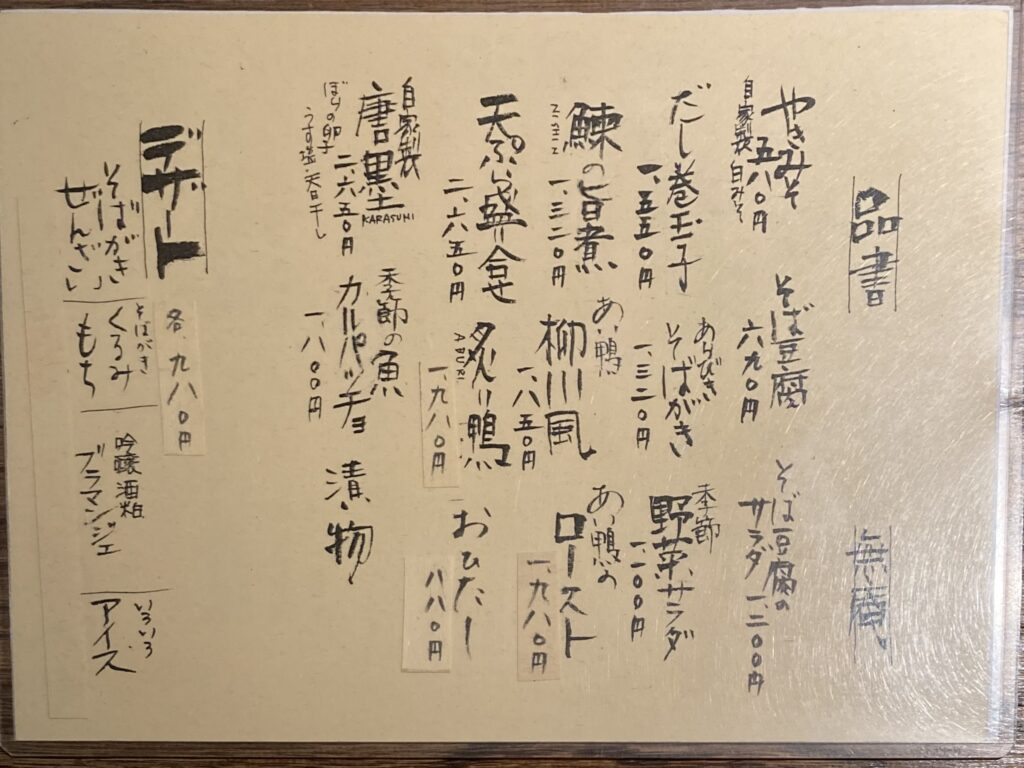 品書
無庵
やきみそ
五八〇円
自家製 白みそ
そば豆腐
六九〇円
そば豆腐の
サラダ 一、二〇〇円
だし巻玉子
一、五五〇円
あらびき
そばがき
一、三二〇円
季節
野菜サラダ
一、一〇〇円
鰊の旨煮
一、三二〇円
あい鴨
柳川風
一、八五〇円
あい鴨の
ロースト
一、九八〇円
天ぷら盛り合せ
二、六五〇円
炙り鴨
ABURI
一、九八〇円
おひたし
八八〇円
自家製
唐墨
KARASUMI
二、六五〇円
ぼらの卵
うす塩・天日干し
季節の魚
カルパッチョ
一、八〇〇円
漬物
デザート
各、九八〇円
そばがき
ぜんざい
そばがき
くるみ
もち
吟醸酒粕
ブラマンジェ
いろいろ
アイス